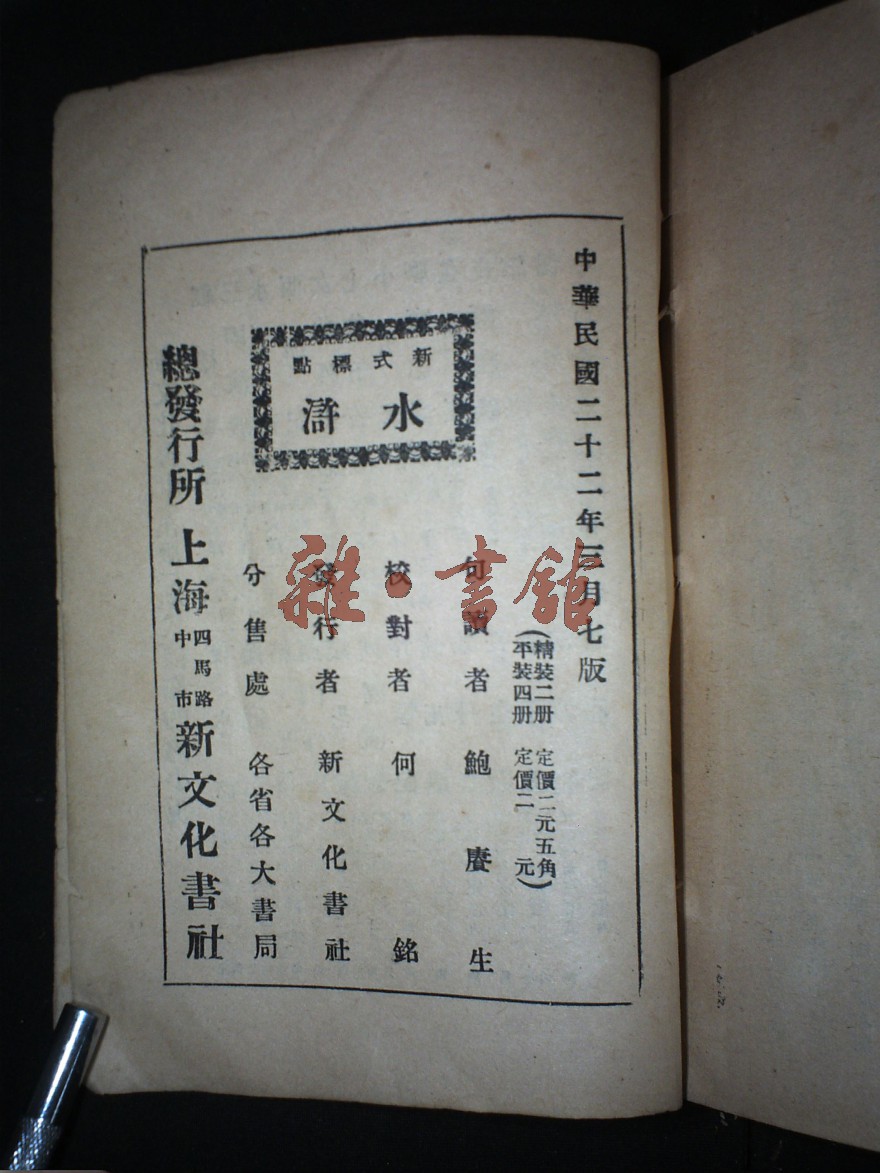 中華民國二十二年三月七版
(精裝二册 定價二元五角
平裝四册 定價二 元)
新式標點
水滸
句讀者 鮑賡生
校對者 何銘
發行者 新文化書社
分售處 各省各大書局
總發行所 上海 四馬路
中市 新文化書社
雜·書館